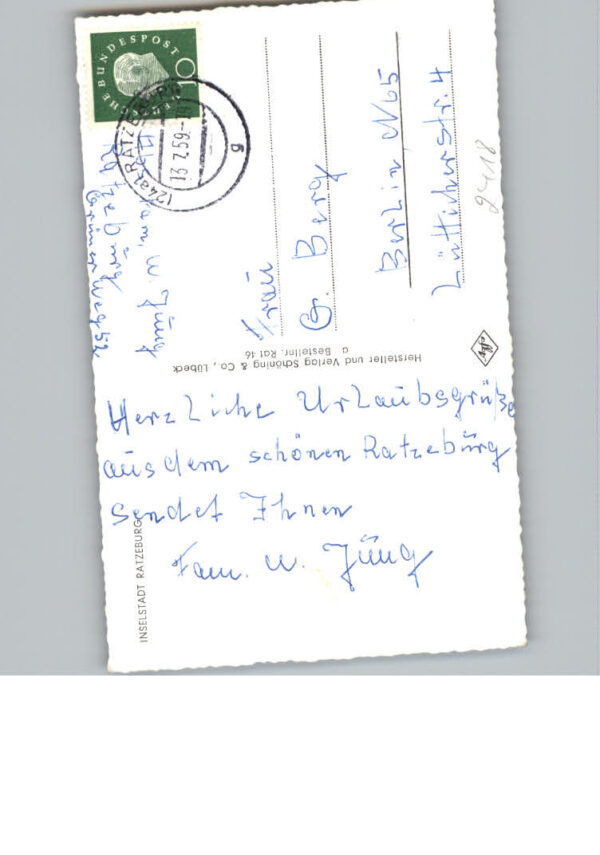 Herzliche Urlaubsgrüße
aus dem schönen Ratzebürg
sendet Ihnen
Fam. W. Jüng
INSELSTADT RATZEBURG
Hersteller und Verlag Schöning & Co., Lübeck
a Bestellnr. Rat 16
DEUTSCHE BUNDESPOST
10
(24a) RATZEBURG
13.7.59
g
W. Jüng
Ratzebürg
Grüner Weg 52
Frau
G. Berg
Berlin N65
Lütticherstr. 4
2418